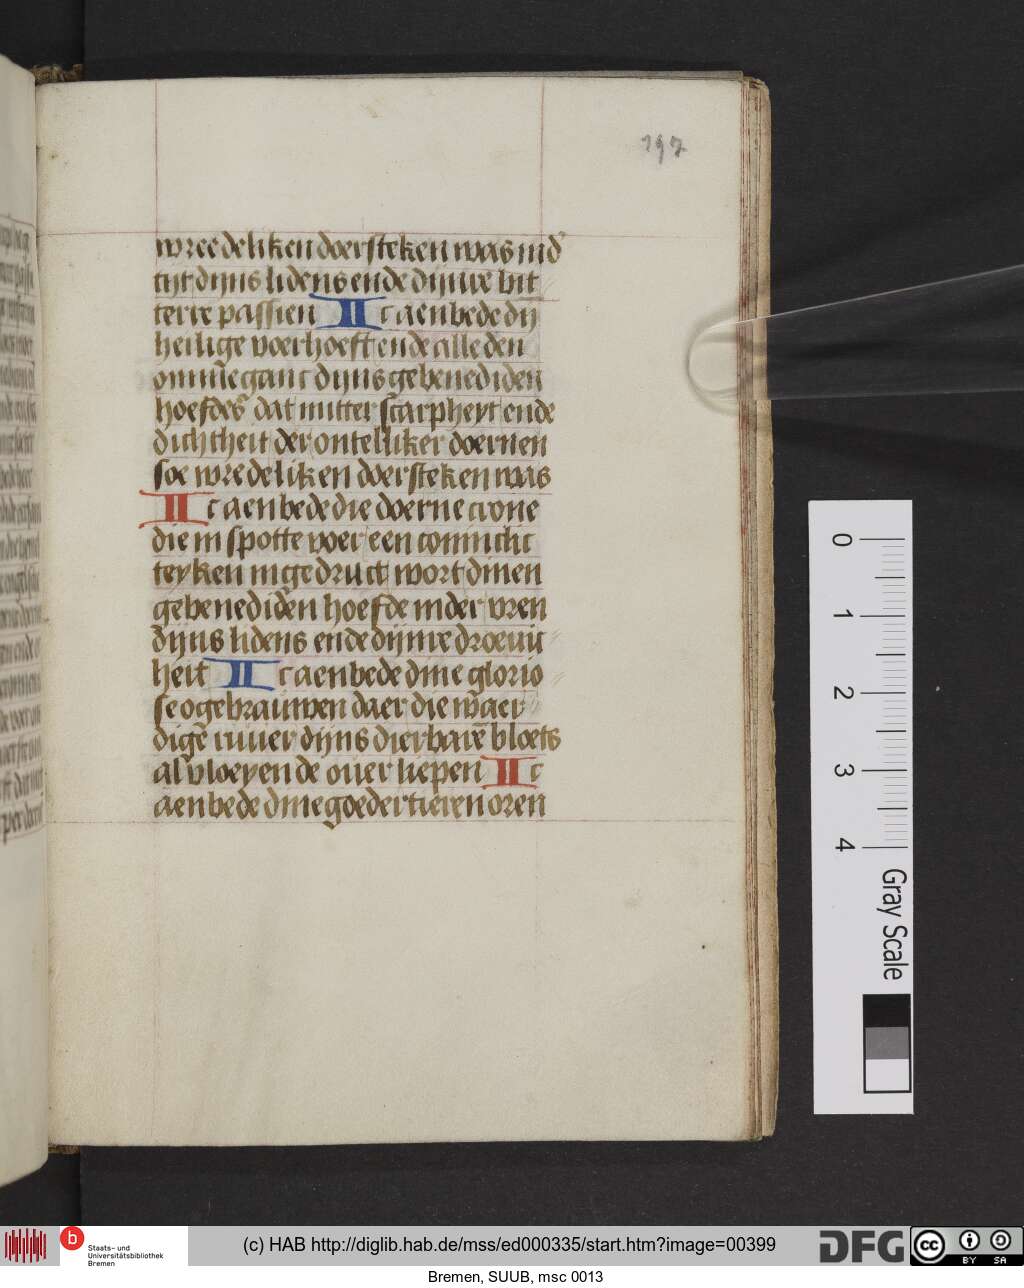 197
wreedeliken doersteken was in d'
tijt dijns lidens ende dijnre bit
terre passien Ic aenbede dij
heilige voerhoeft ende alle den
omme ganc dijns gebenediden
hoefdes dat mitter scarpheyt ende
dichtheit der ontelliker doernen
soe wredeliken doersteken was
Ic aenbede die doerne crone
die in spotte voer een conincht
teyken ingedruct wort dinen
gebenediden hoefde in der vren
dijns lidens ende dijnre droeuic
heit Ic aenbede dine glorio
se ogebrauwen daer die waer
dige riuier dijns dierbare bloets
al vloeyende ouer liepen Ic
aenbede dine goedertieren oren
0
1
2
3
4
Gray Scale
b
Staats- und
Universitätsbibliothek
Bremen
(c) HAB http://diglib.hab.de/mss/ed000335/start.htm?image=00399
DFG
cc BY SA
Bremen, SUUB, msc 0013